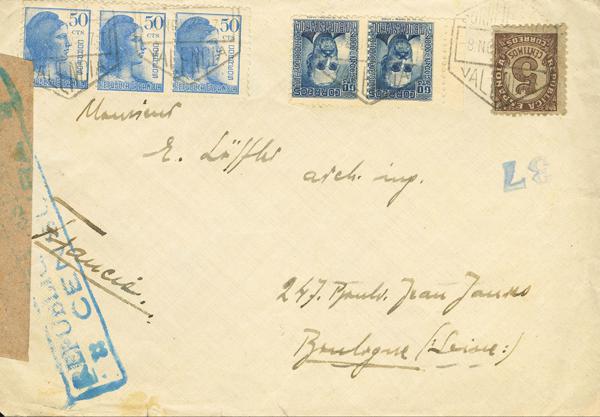 50 CTS CORREOS REPUBLICA ESPAÑOLA
50 CTS CORREOS REPUBLICA ESPAÑOLA
50 CTS CORREOS REPUBLICA ESPAÑOLA
60 CORREOS
60 CORREOS
5 CENTIMOS CORREOS REPUBLICA ESPAÑOLA
VALENCIA
8 NO
VAL
Monsieur
E. Löffler
arch. ing.
L3
Francia.
247. Boulv. Jean Jaurès
Boulogne (Seine:)
REPUBLICA
CEN